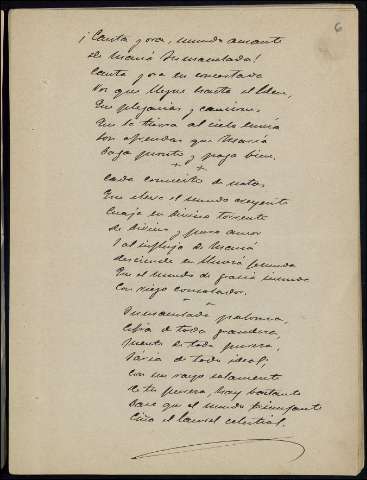 6
¡Canta y ora, mundo amante
de María Inmaculada!
Canta y ora en concertada
Voz que llegue hasta el Eden,
Que plegarias y canciones
Que la tierra al cielo envía
Son ofrendas que María
baja pronto y paga bien.
Cada concierto de notas
Que eleva el mundo creyente
Cuaja en divino torrente
de divino y puro amor
Y al influjo de María
desciende en lluvia fecunda
Que el mundo de gracia inunda
Con riego consolador.
Inmaculada paloma,
Cifra de toda grandeza,
fuente de toda pureza,
de todo ideal;
Con un rayo solamente
de tu pureza, hay bastante
Para que el mundo triunfante
Ciña el laurel celestial.